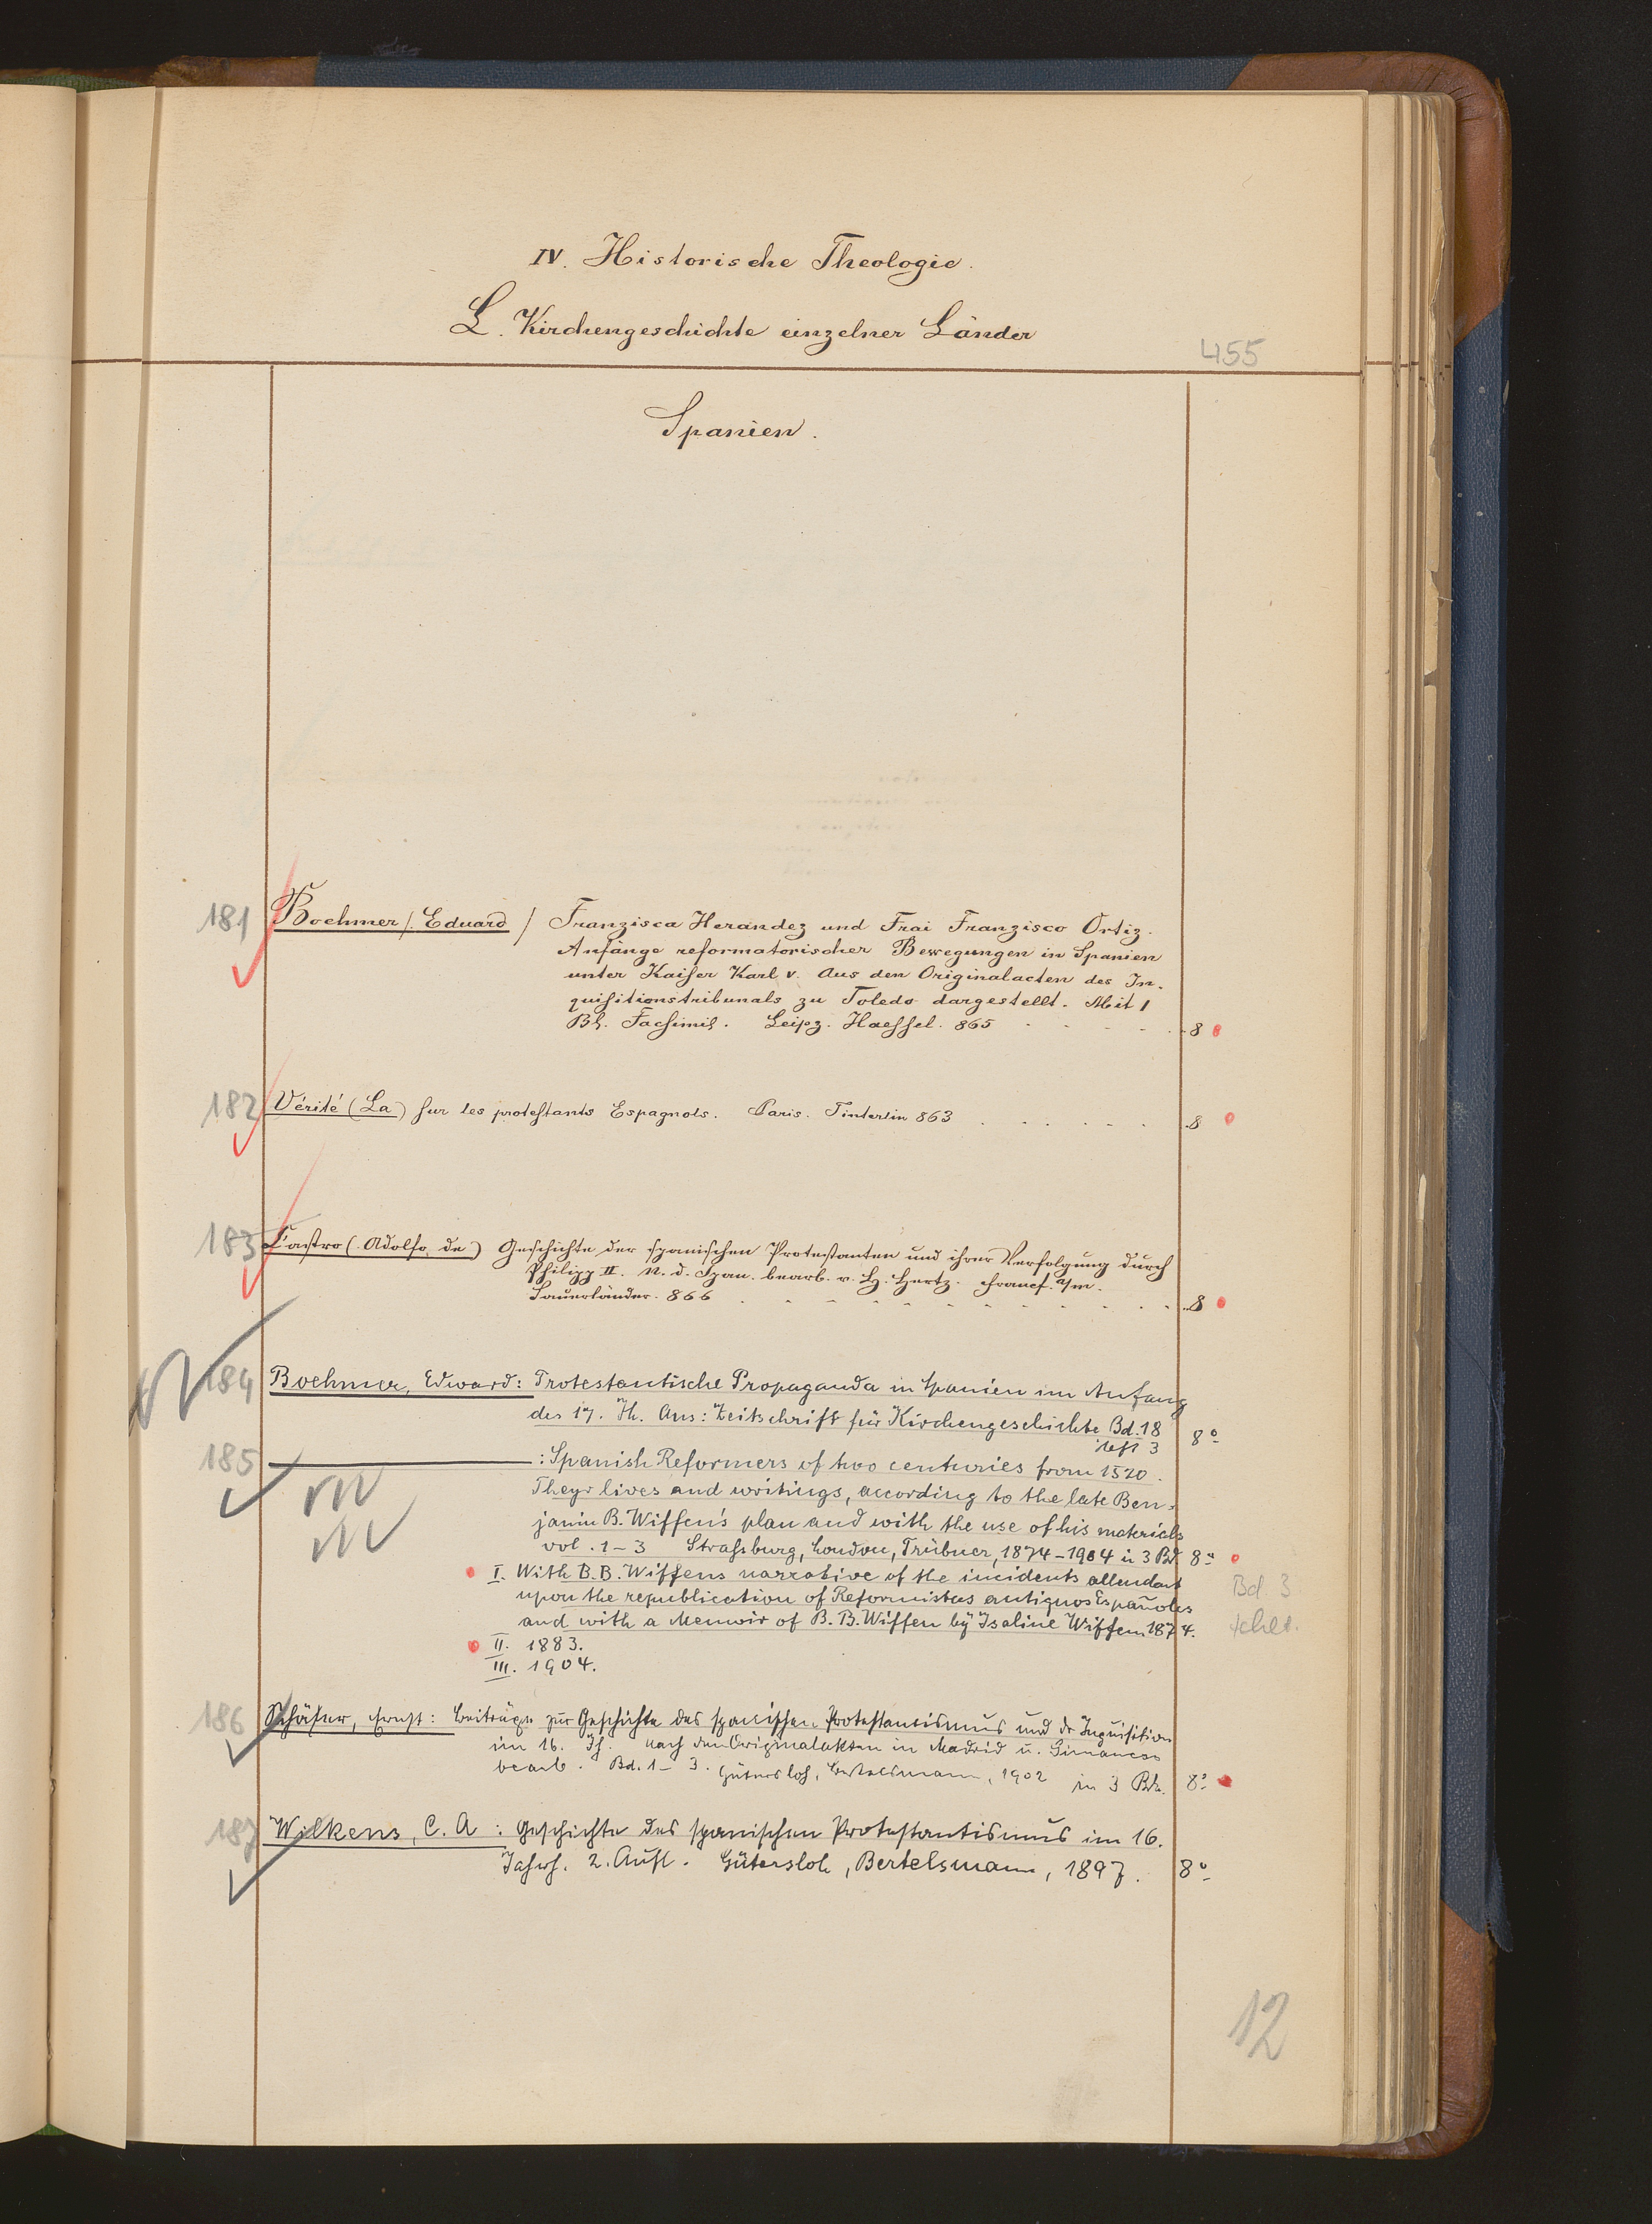 IV. Historische Theologie.
L. Kirchengeschichte einzelner Länder
455
Spanien.
181 Boehmer /. Eduard / Franzisca Herandez und Frai Franzisco Ortiz.
Anfänge reformatorischer Bewegungen in Spanien
unter Kaiser Karl V. Aus den Originalacten des In-
quisitionstribunals zu Toledo dargestellt. Mit 1
Bl. Facsimil. Leipz. Haessel. 865 8
182 Vérité (La) sur les protestants Espagnols. Paris. Tinterlin 863 8
183 Castro (Adolfo, de) Geschichte der spanischen Protestanten und ihrer Verfolgung durch
Philipp II. N. d. Span. bearb. v. H. Hertz. Francf. a/m.
Sauerländer. 866 8
184 Boehmer, Edward: Protestantische Propaganda in Spanien im Anfang
des 17. Jh. Aus: Zeitschrift für Kirchengeschichte Bd. 18
Heft 3 8º
185 : Spanish Reformers of two centuries from 1520.
Theyr lives and writings, according to the late Ben-
jamin B. Wiffen's plan and with the use of his materials
vol. 1-3 Strassburg, London, Trübner, 1874-1904 in 3 Bd. 8º
I. With B. B. Wiffens narrative of the incidents attendant
upon the republication of Reformistas antiguos Españoles
and with a Memoir of B. B. Wiffen by Isaline Wiffen 1874.
Bd 3
fehlt.
II. 1883.
III. 1904.
186 Schäfer, Ernst: Beiträge zur Geschichte des spanischen Protestantismus und der Inquisition
im 16. Jh. nach den Originalakten in Madrid u. Simancas
bearb. Bd. 1-3. Gütersloh, Bertelsmann, 1902 in 3 Bdn. 8º
187 Wilkens, C. A: Geschichte des spanischen Protestantismus im 16.
Jahrh. 2. Aufl. Gütersloh, Bertelsmann, 1897. 8º
12